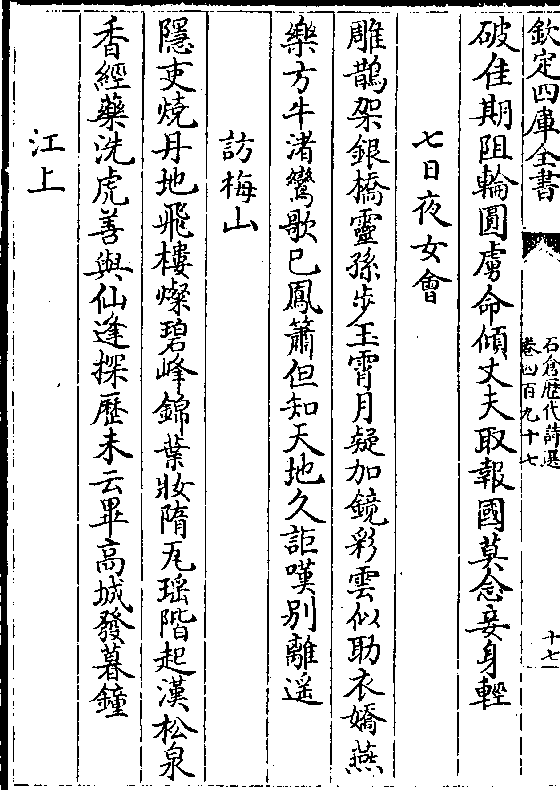 欽定四庫全書
石倉歷代詩選
卷四百九十七
十七
破佳期阻輪圓虜命傾丈夫取報國莫念妾身輕
七日夜女會
雕鵲架銀橋靈孫步玉霄月疑加鏡彩雲似助衣嬌燕
樂方牛渚鸞歌已鳳簫但知天地久詎嘆別離遥
訪梅山
隱吏燒丹地飛樓燦碧峰錦葉妝隋瓦瑶階起漢松泉
香經藥洗虎善與仙逢探歷未云畢高城發暮鐘
江上